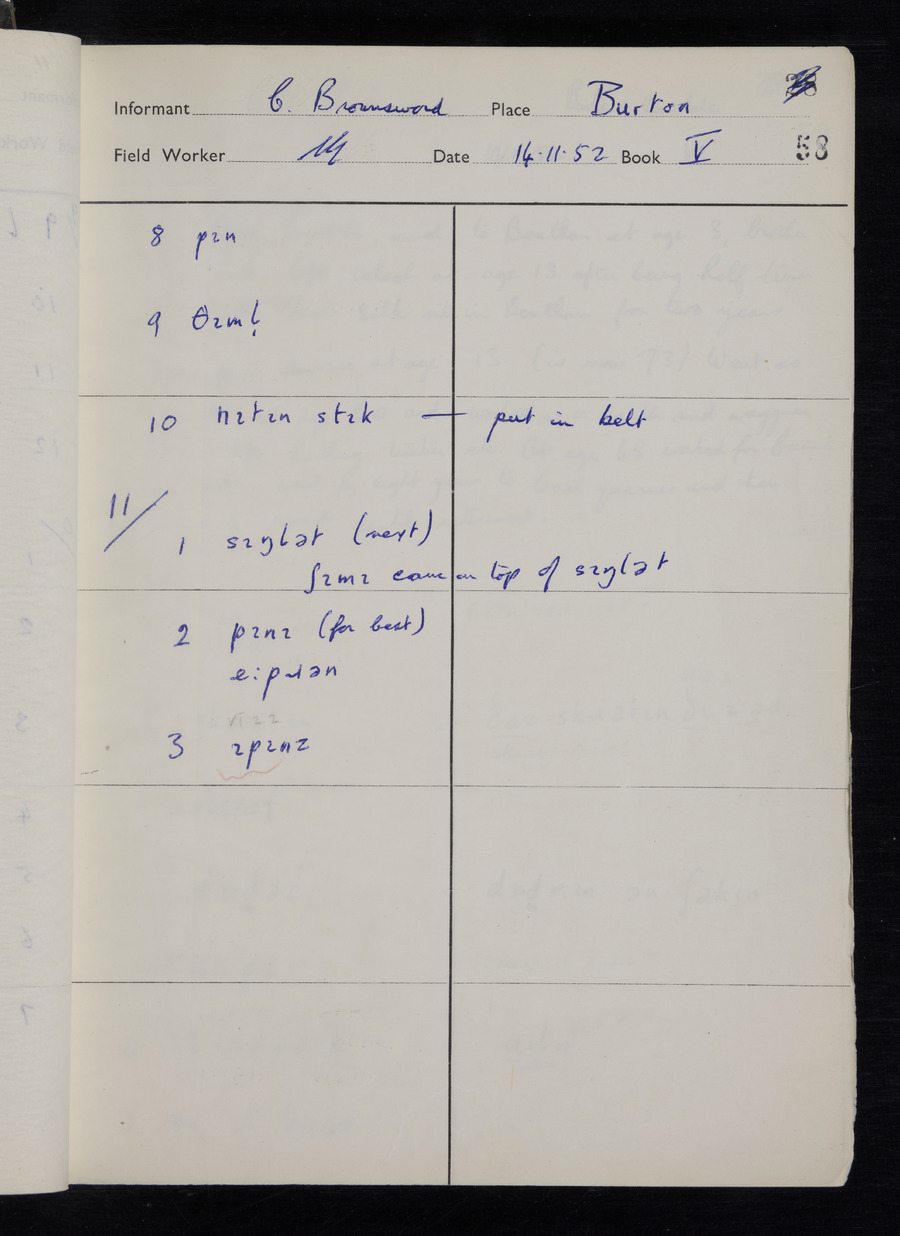 Informant C. Brownsword Place Burton
Field Worker Date 14.11.52 Book V 58
8 pɪn
9 θɪml̩
10 nɪtɪn stɪk — put in belt
11/
1 sɪŋlət (next)
ʃɪmɪ came on top of sɪŋlət
2 pɪnɪ (for best)
e:pɹən
3 ɪpɪnz